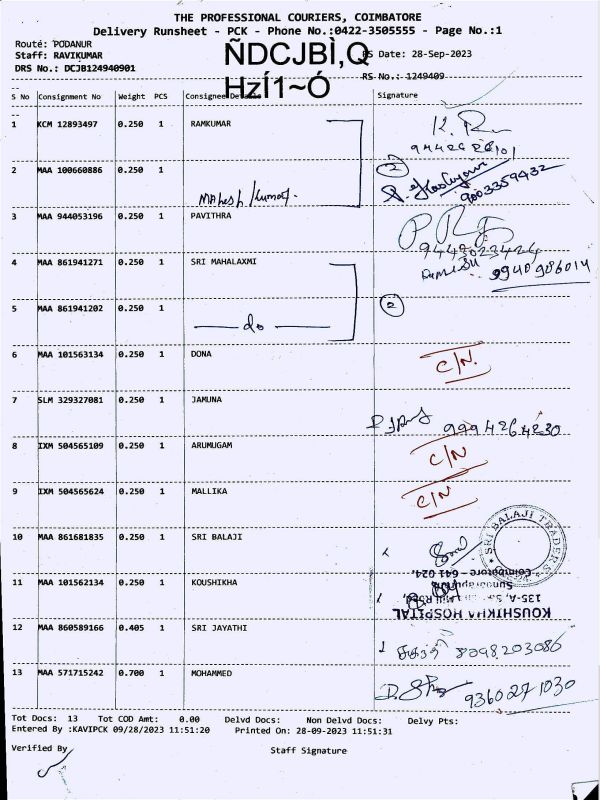 THE PROFESSIONAL COURIERS, COIMBATORE
Delivery Runsheet - PCK - Phone No.:0422-3505555 - Page No.:1
Route: PODANUR
Staff: RAVIKUMAR
RS Date: 28-Sep-2023
DRS No.: DCJB124940901
ÑDCJBÌ,Q
HzÍ1~Ó
RS No.: 1249409
S No Consignment No Weight PCS Consignee Details Signature
1 KCM 12893497 0.250 1 RAMKUMAR
2 MAA 100660886 0.250 1 Mahesh Kumar. 2 9003359432
3 MAA 944053196 0.250 1 PAVITHRA
9443023424
4 MAA 861941271 0.250 1 SRI MAHALAXMI 9940986014
5 MAA 861941202 0.250 1 do 2
6 MAA 101563134 0.250 1 DONA C/N.
7 SLM 329327081 0.250 1 JAMUNA 9994264230
8 IXM 504565109 0.250 1 ARUMUGAM C/N
9 IXM 504565624 0.250 1 MALLIKA C/N
10 MAA 861681835 0.250 1 SRI BALAJI
SRI BALAJI TRADERS
11 MAA 101562134 0.250 1 KOUSHIKHA
KOUSHIKHA HOSPITAL
Coimbatore - 641 024.
12 MAA 860589166 0.405 1 SRI JAYATHI 8098203086
13 MAA 571715242 0.700 1 MOHAMMED 9360271030
Tot Docs: 13 Tot COD Amt: 0.00 Delvd Docs: Non Delvd Docs: Delvy Pts:
Entered By :KAVIPCK 09/28/2023 11:51:20 Printed On: 28-09-2023 11:51:31
Verified By
Staff Signature